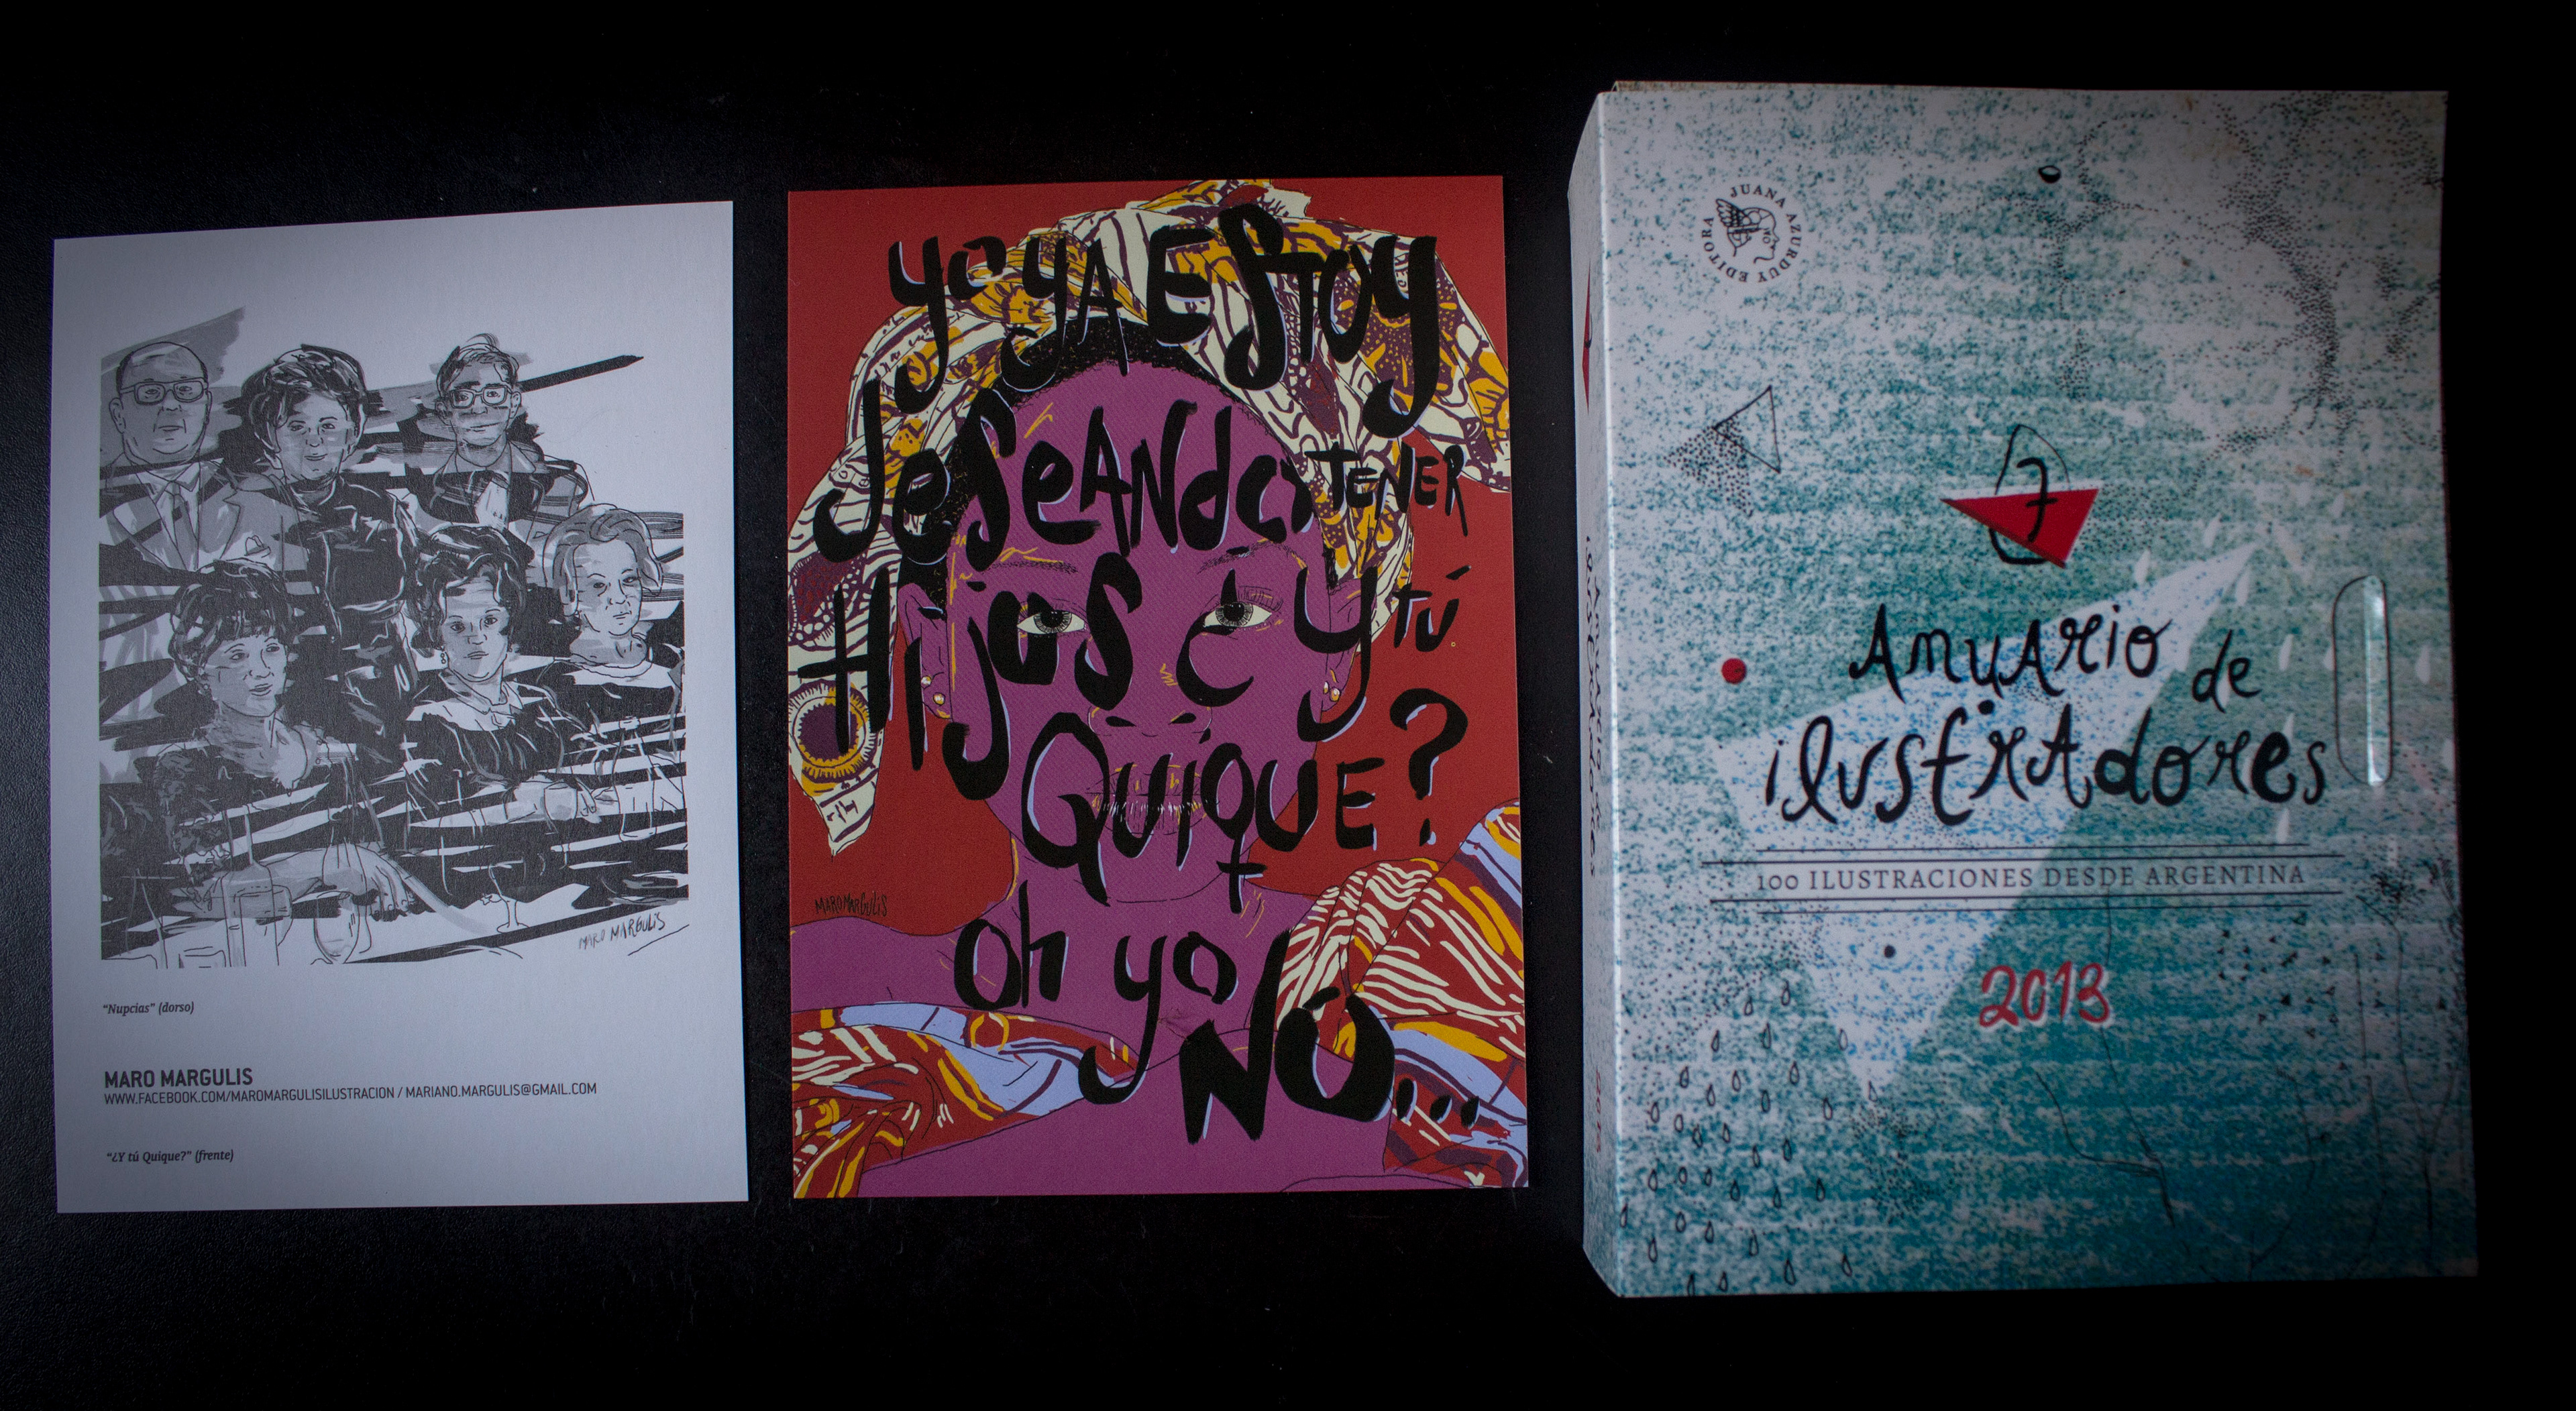 MARO MARGULIS
"Nupcias" (dorso)
MARO MARGULIS
WWW.FACEBOOK.COM/MAROMARGULISILUSTRACION / MARIANO.MARGULIS@GMAIL.COM
"¿Y tú Quique?" (frente)
yo yA EStoy
deSeANdo TENER
HijoS ¿y tú
QuiqUE?
MAROMARGULIS
oh yo
NO...
JUANA AZURDUY EDITORA
7
AnuARio de
ilustRAdoRes
100 ILUSTRACIONES DESDE ARGENTINA
2013